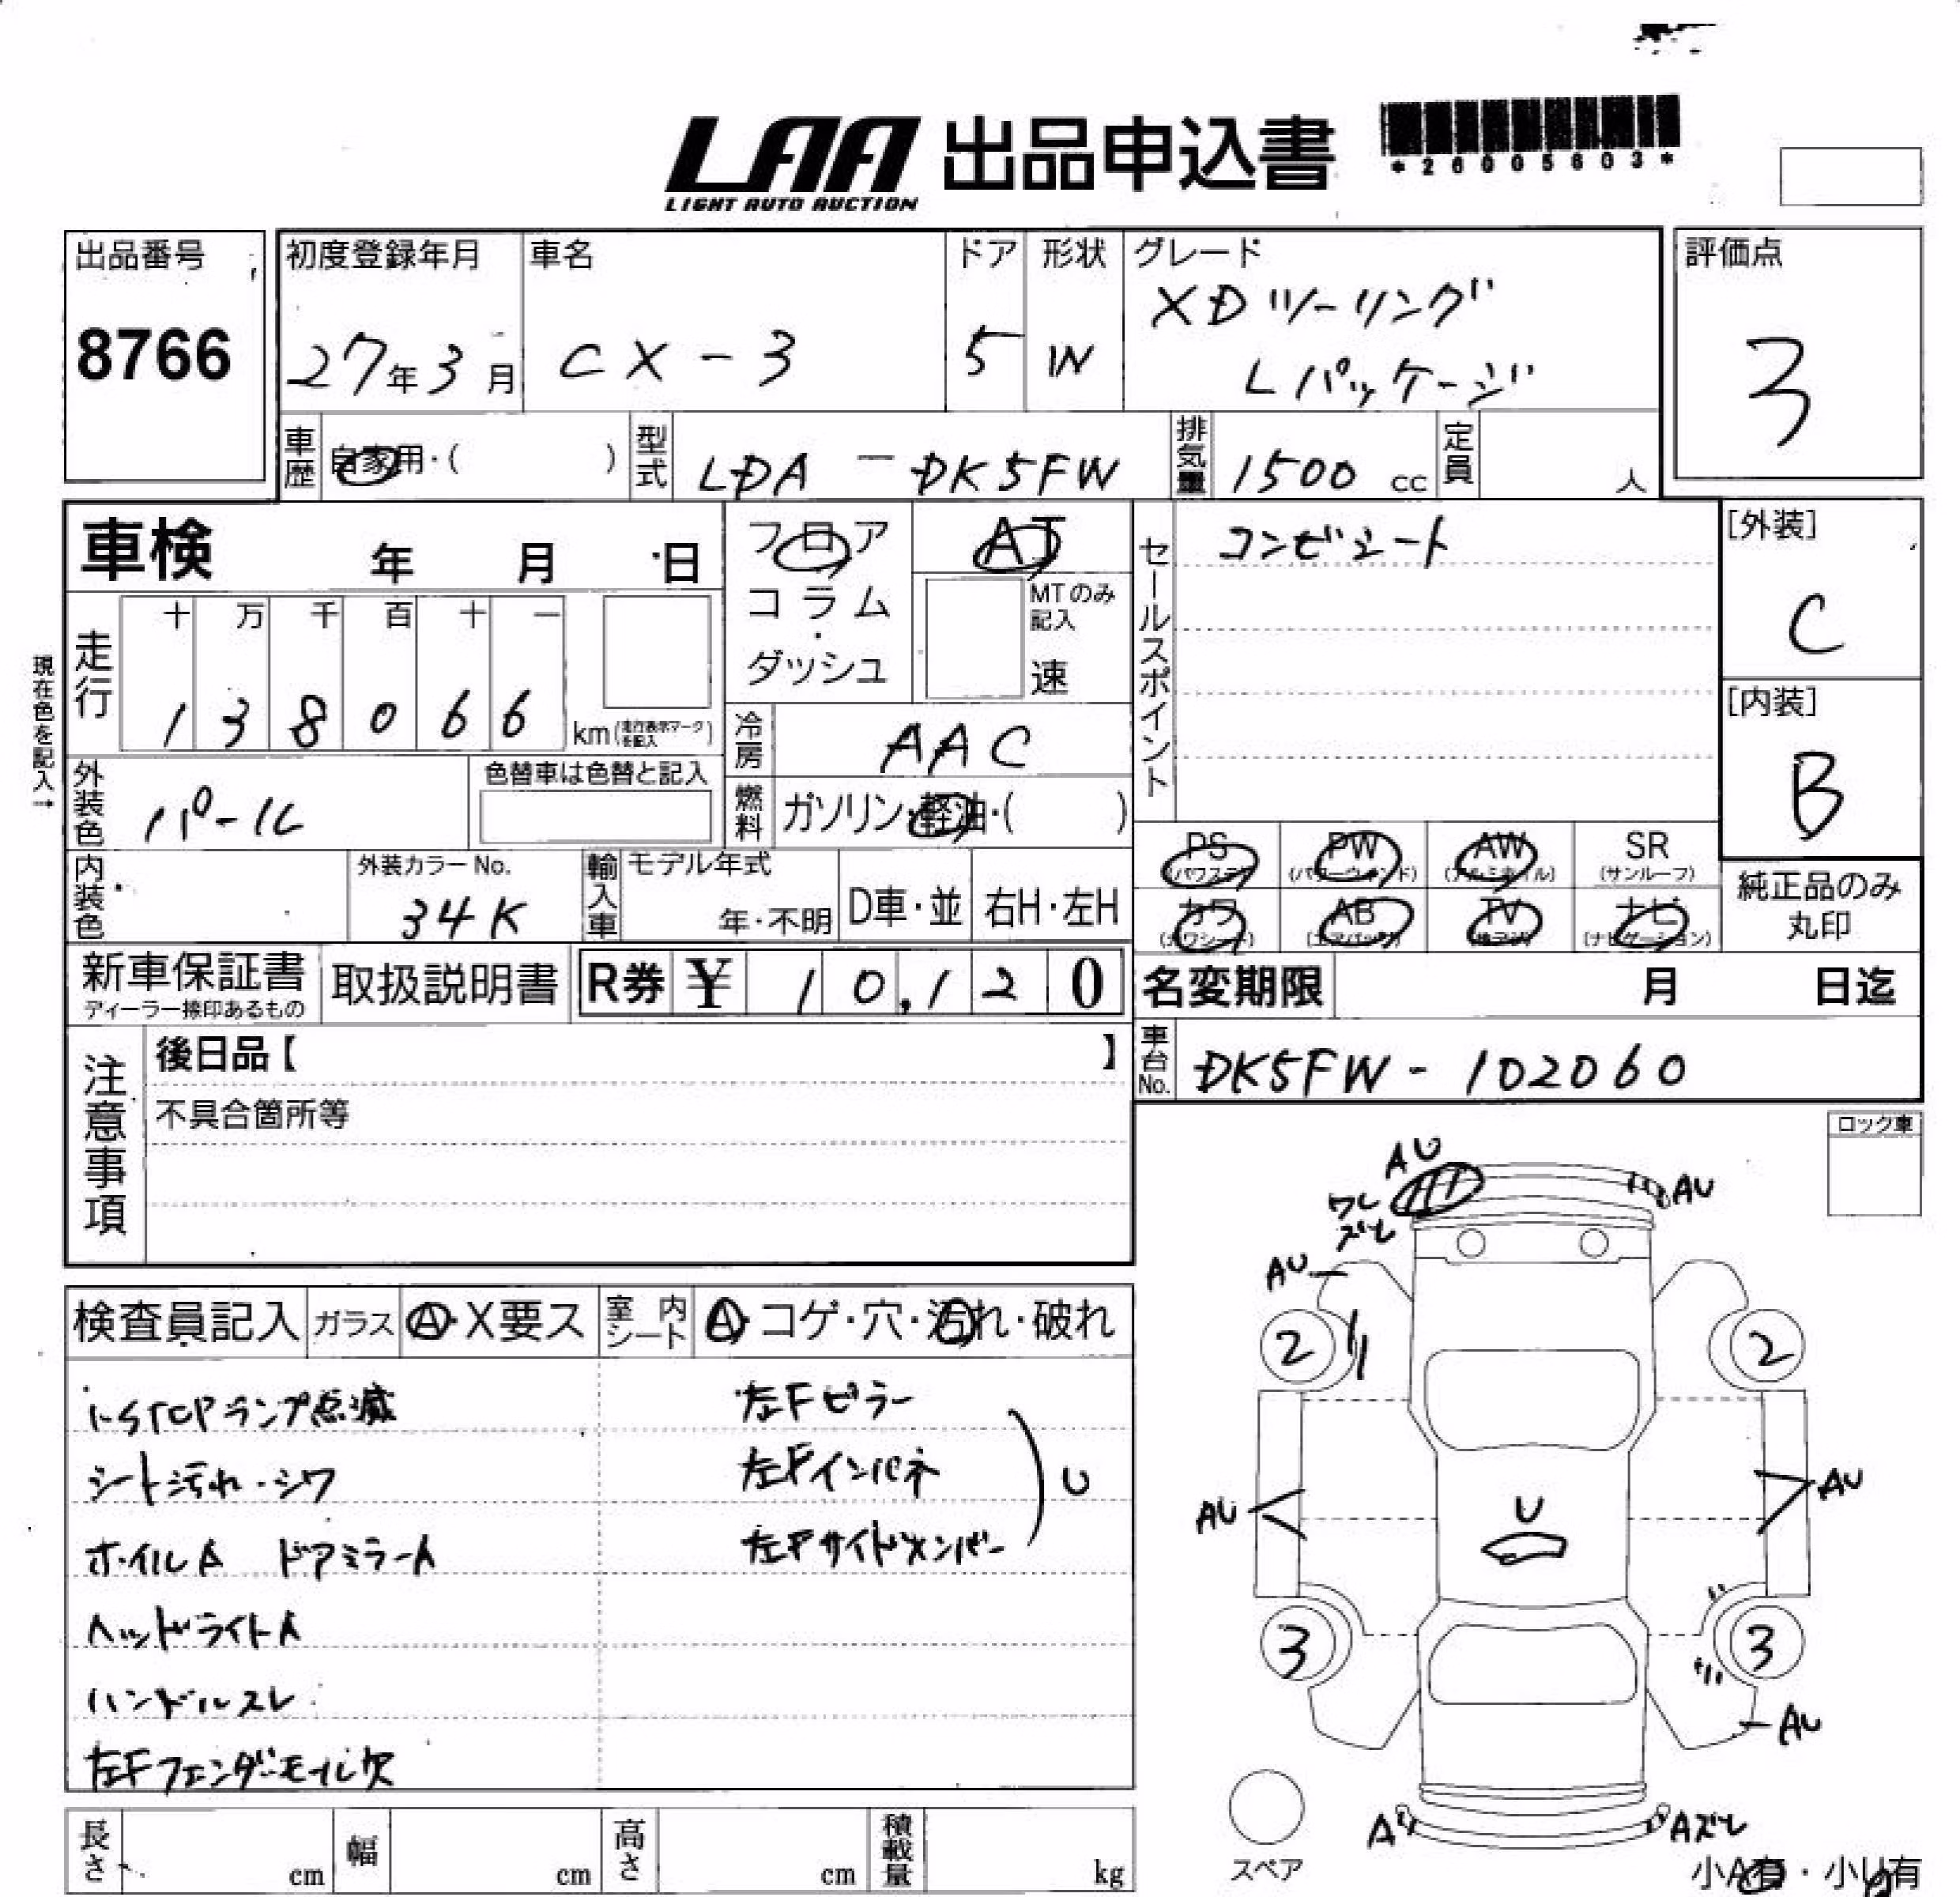 LAA 出品申込書
LIGHT AUTO AUCTION
*26005603*
出品番号
8766
初度登録年月
27年3月
車名
CX-3
ドア
5
形状
IN
グレード
XDツーリング
Lパッケージ
評価点
3
車歴
自家用・( )
型式
LDA-DK5FW
排気量
1500 cc
定員
人
車検 年 月 日
フロア
コラム
ダッシュ
AT
MTのみ
記入
速
セールスポイント
コンビシート
[外装]
C
[内装]
B
現在色を記入→
走行
十 万 千 百 十 一
1 3 8 0 6 6
km(走行表示マークを記入)
冷房
AAC
外装色
パール
色替車は色替と記入
燃料
ガソリン・軽油・( )
PS
(パワステ)
PW
(パワーウィンド)
AW
(アルミホイル)
SR
(サンルーフ)
内装色
外装カラーNo.
34K
輸入車
モデル年式
年・不明
D車・並
右H・左H
カワ
(カワシート)
AB
(エアバッグ)
TV
ナビ
(ナビゲーション)
純正品のみ
丸印
新車保証書
ディーラー捺印あるもの
取扱説明書
R券 ¥ 10,120
名変期限 月 日迄
注意事項
後日品【 】
不具合箇所等
車台No.
DK5FW-102060
ロック車
AU
ワレ
ズレ
AU
AU
2
2
AU
U
AU
3
3
AU
A
Aズレ
スペア
小A有・小U有
検査員記入
ガラス
A・X要ス
室内シート
A・コゲ・穴・汚れ・破れ
i-STOPランプ点滅
シート汚れ・シワ
ホイルA ドアミラーA
ヘッドライトA
ハンドルスレ
左Fフェンダーモール欠
左Fピラー
左Fインパネ
左Fサイドメンバー
U
長さ cm
幅 cm
高さ cm
積載量 kg